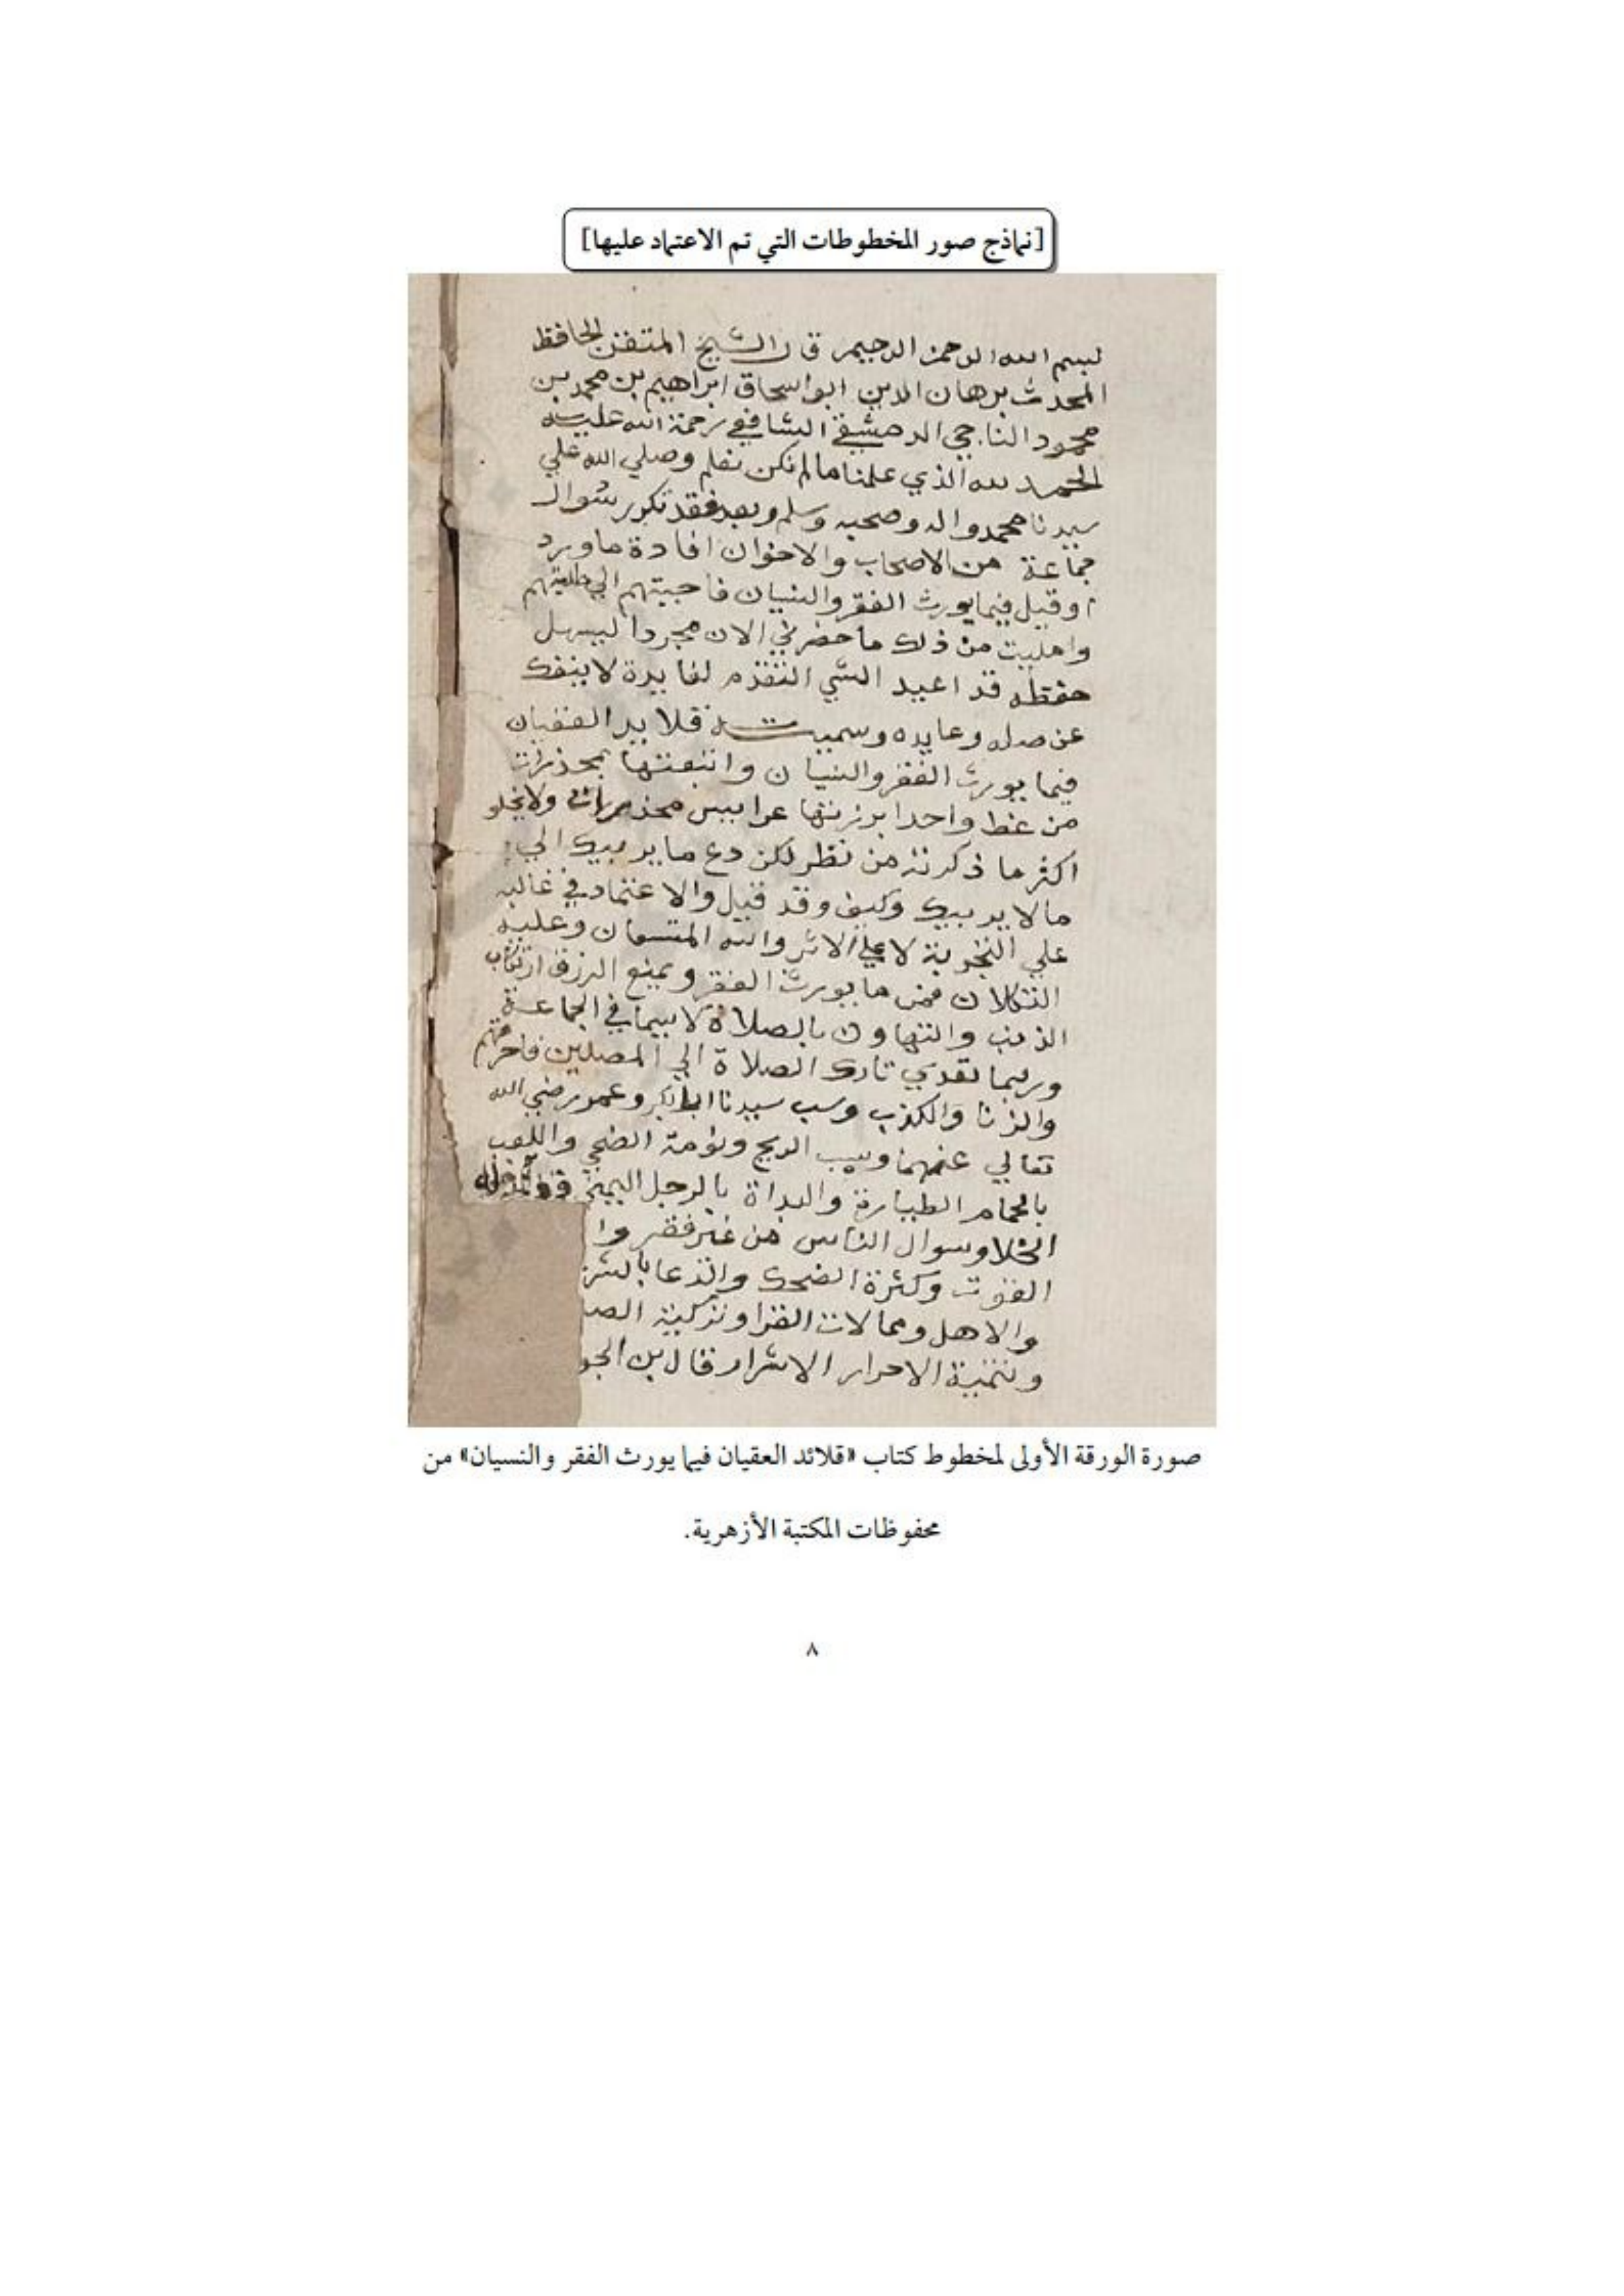 [نماذج صور المخطوطات التي تم الاعتماد عليها]
بسم الله الرحمن الرحيم قال الشيخ المتقن الحافظ
المحدث برهان الدين ابو اسحاق ابراهيم بن محمد بن
محمود الناجي الدمشقي الشافعي رحمة الله عليه
الحمد لله الذي علمنا ما لم نكن نعلم وصلي الله علي
سيدنا محمد واله وصحبه وسلم وبعد فقد تكرر سوال
جماعة من الاصحاب والاخوان افادة ما ورد
او قيل فيما يورث الفقر والنسيان فاجبتهم الي طلبتهم
وامليت من ذلك ما حضرني الان مجردا ليسهل
حفظه قد اعيد الشي المتقدم لفايدة لا ينفك
عن صله وعايده وسميته قلايد العقيان
فيما يورث الفقر والنسيان واتبعتها بمحذرات
من نمط واحد ابرزتها عرايس ولا يخلو
اكثر ما ذكرته من نظر لكن دع ما يريبك الي
ما لا يريبك وكيف وقد قيل والاعتماد في غالبه
علي التجربة لا علي الاثر والله المستعان وعليه
التكلان فمن ما يورث الفقر ويمنع الرزق ارتكاب
الذنب والتهاون بالصلاة لا سيما في الجماعة
وربما تعدي تارك الصلاة الي المصلين فاحرمهم
والزنا والكذب وسب سيدنا ابا بكر وعمر رضي الله
تعالي عنهما وسب الريح ونومة الضحي واللعب
بالحمام الطيارة والبداة بالرجل اليمني
الخلا وسوال الناس من غير فقر وا
القوت وكثرة الضحك والدعا بالشر
والاهل ومحالات القرا وتزكية الصا
وتنمية الاحرار الاشرار قال بن الجو
صورة الورقة الأولى لمخطوط كتاب «قلائد العقيان فيما يورث الفقر والنسيان» من
محفوظات المكتبة الأزهرية.
٨